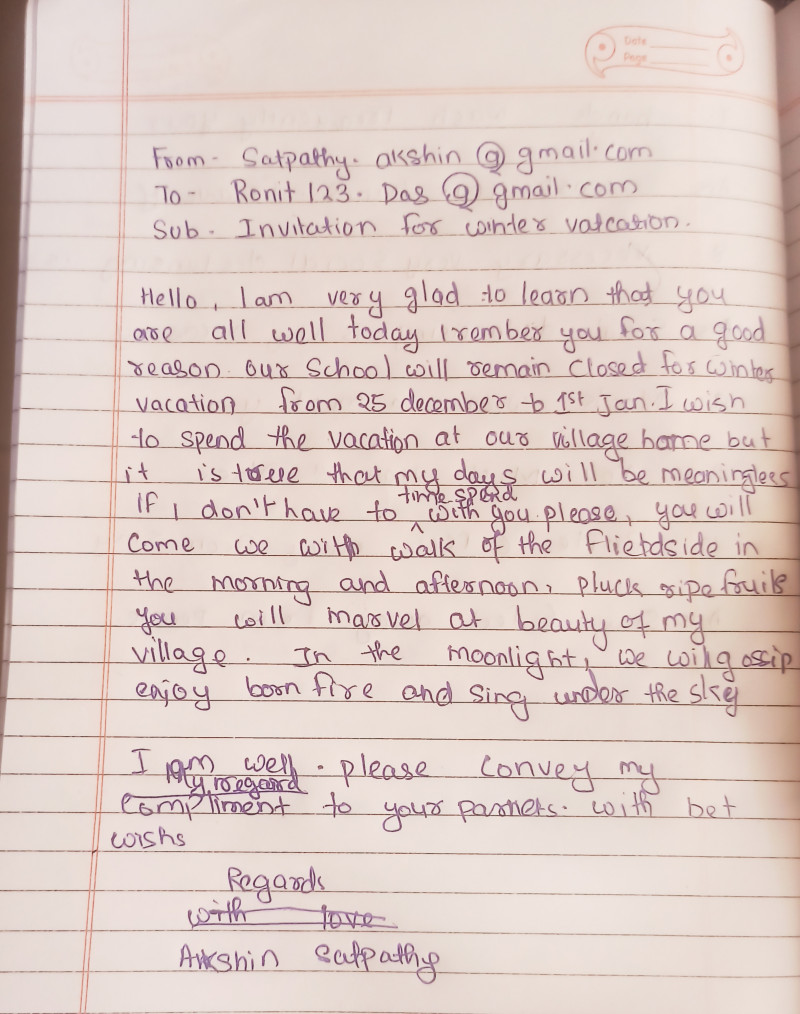 Date
Page
From - Satpathy. akshin @ gmail.com
To - Ronit 123. Das @ gmail.com
Sub - Invitation for winter vatcation.
Hello, I am very glad to learn that you
are all well today I rember you for a good
reason. Our School will remain closed for winter
vacation from 25 december to 1st Jan. I wish
to spend the vacation at our village home but
it is true that my days will be meaningless
time spend
If I don't have to ^ with you. please, you will
Come we with walk of the flietdside in
the morning and afternoon, pluck ripe fruits
you will marvel at beauty of my
village. In the moonlight, we will gossip
enjoy born fire and sing under the sky
I am well. please convey my
My regard
Compliment to your parnets. with bet
wishs
Regards
with love
Akshin Satpathy